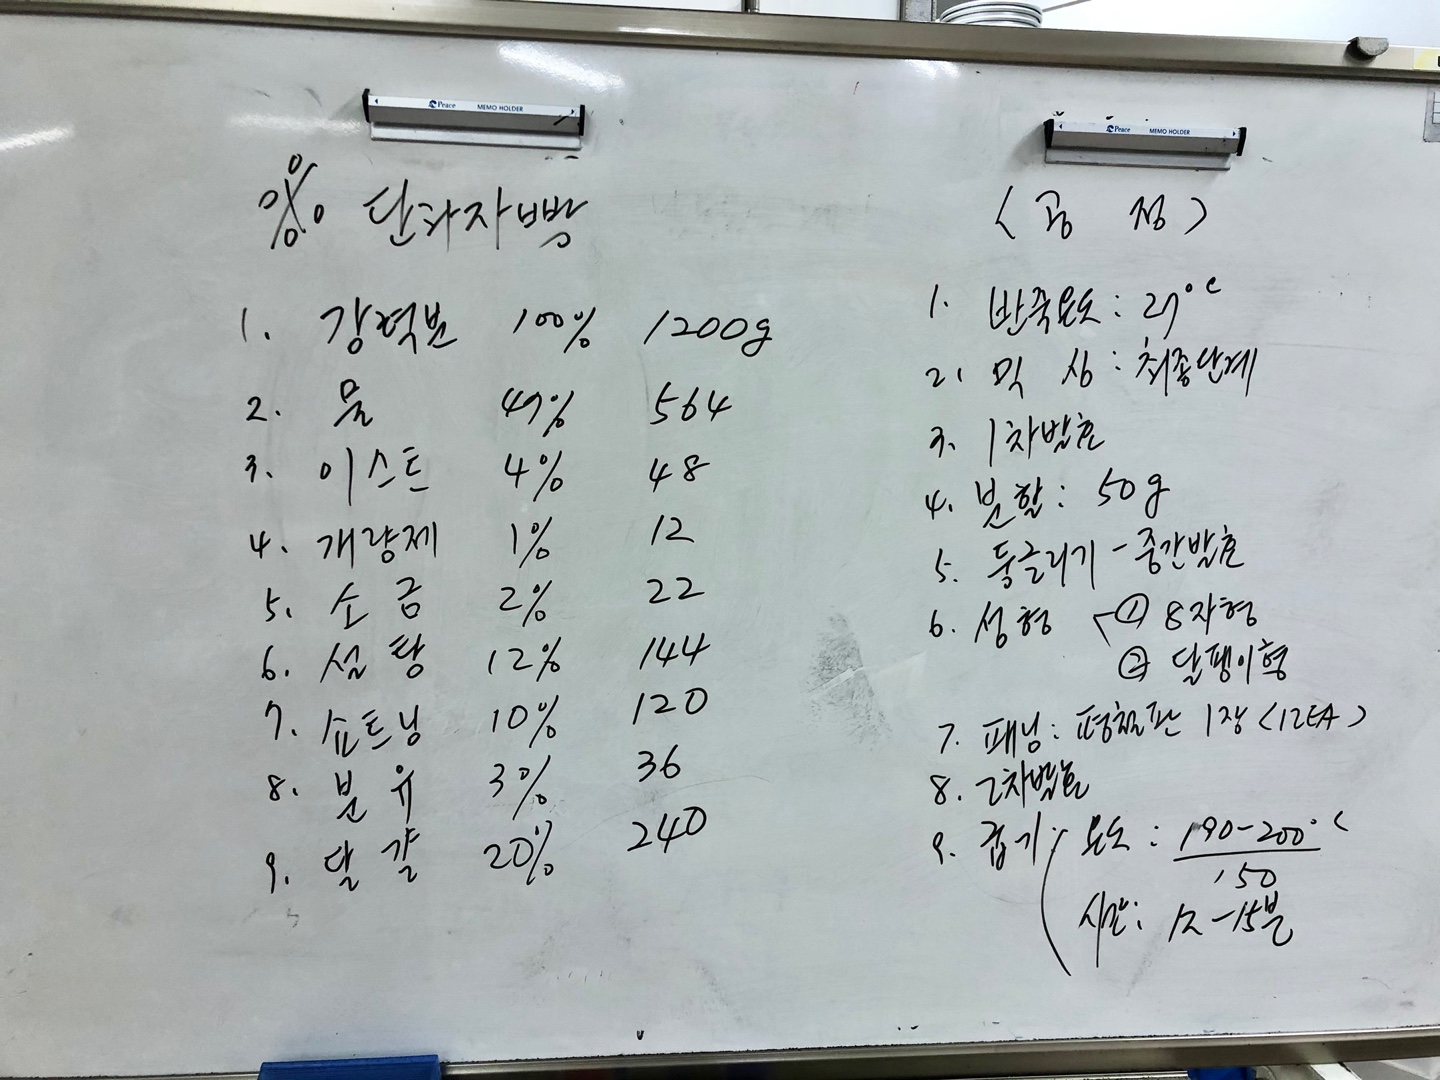 Peace MEMO HOLDER
Peace MEMO HOLDER
※ 단과자빵
1. 강력분 100% 1200g
2. 물 47% 564
3. 이스트 4% 48
4. 개량제 1% 12
5. 소금 2% 22
6. 설탕 12% 144
7. 쇼트닝 10% 120
8. 분유 3% 36
9. 달걀 20% 240
<공 정>
1. 반죽온도 : 27°C
2. 믹싱 : 최종단계
3. 1차발효
4. 분할 : 50g
5. 둥글리기 - 중간발효
6. 성형 ① 8자형
② 달팽이형
7. 패닝 : 평철판 1장 <12EA>
8. 2차발효
9. 굽기 온도 : 190-200°C
150
시간 : 12-15분